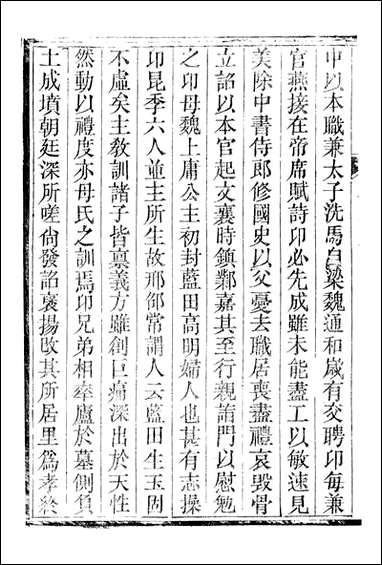 中以本職兼太子洗馬自梁魏通和歲有交聘卬每兼
官燕接在帝席賦詩卬必先成雖未能盡工以敏速見
美除中書侍郎修國史以父憂去職居喪盡禮哀毀骨
立詔以本官起文襄時鎮鄴嘉其至行親詣門以慰勉
之卬母魏上庸公主初封藍田高明婦人也甚有志操
卬昆季六人並主所生故邢卲常謂人云藍田生玉固
不虛矣主敎訓諸子皆稟義方雖創巨痛深出於天性
然動以禮度亦母氏之訓焉卬兄弟相率廬於墓側負
土成墳朝廷深所嗟尙發詔襃揚改其所居里爲孝終